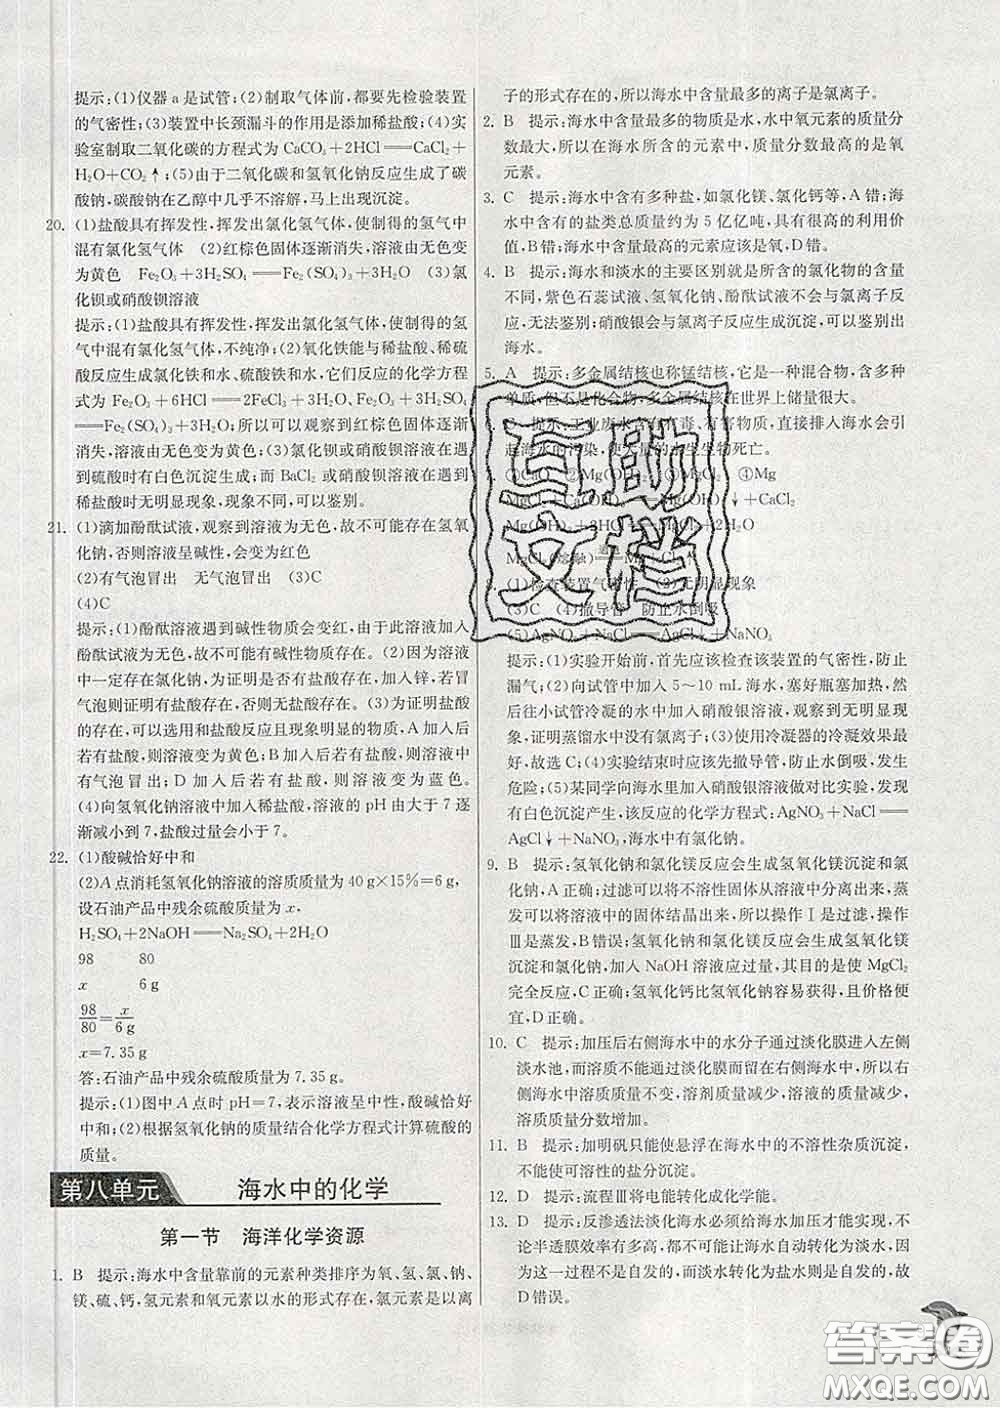 提示:(1)仪器 a 是试管;(2)制取气体前,都要先检验装置
的气密性;(3)装置中长颈漏斗的作用是添加稀盐酸;(4)实
验室制取二氧化碳的方程式为 CaCO₃+2HCl══CaCl₂+
H₂O+CO₂↑;(5)由于二氧化碳和氢氧化钠反应生成了碳
酸钠,碳酸钠在乙醇中几乎不溶解,马上出现沉淀。
20. (1)盐酸具有挥发性,挥发出氯化氢气体,使制得的氢气中
混有氯化氢气体 (2)红棕色固体逐渐消失,溶液由无色变
为黄色 Fe₂O₃+3H₂SO₄══Fe₂(SO₄)₃+3H₂O (3)氯
化钡或硝酸钡溶液
提示:(1)盐酸具有挥发性,挥发出氯化氢气体,使制得的氢
气中混有氯化氢气体,不纯净;(2)氧化铁能与稀盐酸、稀硫
酸反应生成氯化铁和水、硫酸铁和水,它们反应的化学方程
式为 Fe₂O₃+6HCl══2FeCl₃+3H₂O、Fe₂O₃+3H₂SO₄
══Fe₂(SO₄)₃+3H₂O;所以可以观察到红棕色固体逐渐
消失,溶液由无色变为黄色;(3)氯化钡或硝酸钡溶液在遇
到硫酸时有白色沉淀生成;而 BaCl₂ 或硝酸钡溶液在遇到
稀盐酸时无明显现象,现象不同,可以鉴别。
21. (1)滴加酚酞试液,观察到溶液为无色,故不可能存在氢氧
化钠,否则溶液呈碱性,会变为红色
(2)有气泡冒出 无气泡冒出 (3)C
(4)C
提示:(1)酚酞溶液遇到碱性物质会变红,由于此溶液加入
酚酞试液为无色,故不可能有碱性物质存在。(2)因为溶液
中一定存在氯化钠,为证明是否有盐酸存在,加入锌,若冒
气泡则证明有盐酸存在,否则无盐酸存在。(3)为证明盐酸
的存在,可以选用和盐酸反应且现象明显的物质,A 加入后
若有盐酸,则溶液变为黄色;B 加入后若有盐酸,则溶液中
有气泡冒出;D 加入后若有盐酸,则溶液变为蓝色。
(4)向氢氧化钠溶液中加入稀盐酸,溶液的 pH 由大于 7 逐
渐减小到 7,盐酸过量会小于 7。
22. (1)酸碱恰好中和
(2)A 点消耗氢氧化钠溶液的溶质质量为 40 g×15%=6 g,
设石油产品中残余硫酸质量为 x,
H₂SO₄+2NaOH══Na₂SO₄+2H₂O
98 80
x 6 g
98/80=x/6 g
x=7.35 g
答:石油产品中残余硫酸质量为 7.35 g。
提示:(1)图中 A 点时 pH=7,表示溶液呈中性,酸碱恰好
中和;(2)根据氢氧化钠的质量结合化学方程式计算硫酸的
质量。
第八单元 海水中的化学
第一节 海洋化学资源
1. B 提示:海水中含量靠前的元素种类排序为氧、氢、氯、钠、
镁、硫、钙,氢元素和氧元素以水的形式存在,氯元素是以离
子的形式存在的,所以海水中含量最多的离子是氯离子。
2. B 提示:海水中含量最多的物质是水,水中氧元素的质量分
数最大,所以在海水所含的元素中,质量分数最高的是氧
元素。
3. C 提示:海水中含有多种盐,如氯化镁、氯化钙等,A 错;海
水中含有的盐类总质量约为 5 亿亿吨,具有很高的利用价
值,B 错;海水中含量最高的元素应该是氧,D 错。
4. B 提示:海水和淡水的主要区别就是所含的氯化物的含量
不同,紫色石蕊试液、氢氧化钠、酚酞试液不会与氯离子反
应,无法鉴别;硝酸银会与氯离子反应生成沉淀,可以鉴别出
海水。
5. A 提示:多金属结核也称锰结核,它是一种混合物,含多种
单质,但不是化合物,多金属结核在世界上储量很大。
提示:工业废水含有有毒、有害物质,直接排入海水会引
起海水的污染,使大量的水生生物死亡。
①CaO ②Mg(OH)₂ ③MgCl₂ ④Mg
Mg(OH)₂↓+CaCl₂
Mg(OH)₂+2HCl══MgCl₂+2H₂O
MgCl₂(熔融) Mg+Cl₂↑
8. (1)检查装置气密性 (2)无明显现象
(3)C (4)撤导管 防止水倒吸
(5)AgNO₃+NaCl══AgCl↓+NaNO₃
提示:(1)实验开始前,首先应该检查该装置的气密性,防止
漏气;(2)向试管中加入 5~10 mL 海水,塞好瓶塞加热,然
后往小试管冷凝的水中加入硝酸银溶液,观察到无明显现
象,证明蒸馏水中没有氯离子;(3)使用冷凝器的冷凝效果最
好,故选 C;(4)实验结束时应该先撤导管,防止水倒吸,发生
危险;(5)某同学向海水里加入硝酸银溶液做对比实验,发现
有白色沉淀产生,该反应的化学方程式:AgNO₃+NaCl══
AgCl↓+NaNO₃,海水中有氯化钠。
9. B 提示:氢氧化钠和氯化镁反应会生成氢氧化镁沉淀和氯
化钠,A 正确;过滤可以将不溶性固体从溶液中分离出来,蒸
发可以将溶液中的固体结晶出来,所以操作Ⅰ是过滤,操作
Ⅲ是蒸发,B 错误;氢氧化钠和氯化镁反应会生成氢氧化镁
沉淀和氯化钠,加入 NaOH 溶液应过量,其目的是使 MgCl₂
完全反应,C 正确;氢氧化钙比氢氧化钠容易获得,且价格便
宜,D 正确。
10. C 提示:加压后右侧海水中的水分子通过淡化膜进入左侧
淡水池,而溶质因不能通过淡化膜而留在右侧海水中,所以
右侧海水中的溶质质量不变,溶剂质量减少,溶液的质量减少,
溶质质量分数增加。
11. B 提示:加明矾只能使悬浮在海水中的不溶性杂质沉淀,
不能使可溶性的盐分沉淀。
12. D 提示:流程Ⅲ将电能转化成化学能。
13. D 提示:反渗透法淡化海水必须给海水加压才能实现,不
论半透膜效率有多高,都不可能让海水自动转化为淡水,因
为这一过程不是自发的,而淡水转化为盐水则是自发的,故
D 错误。
互助
文档
答案圈
MXQE.COM